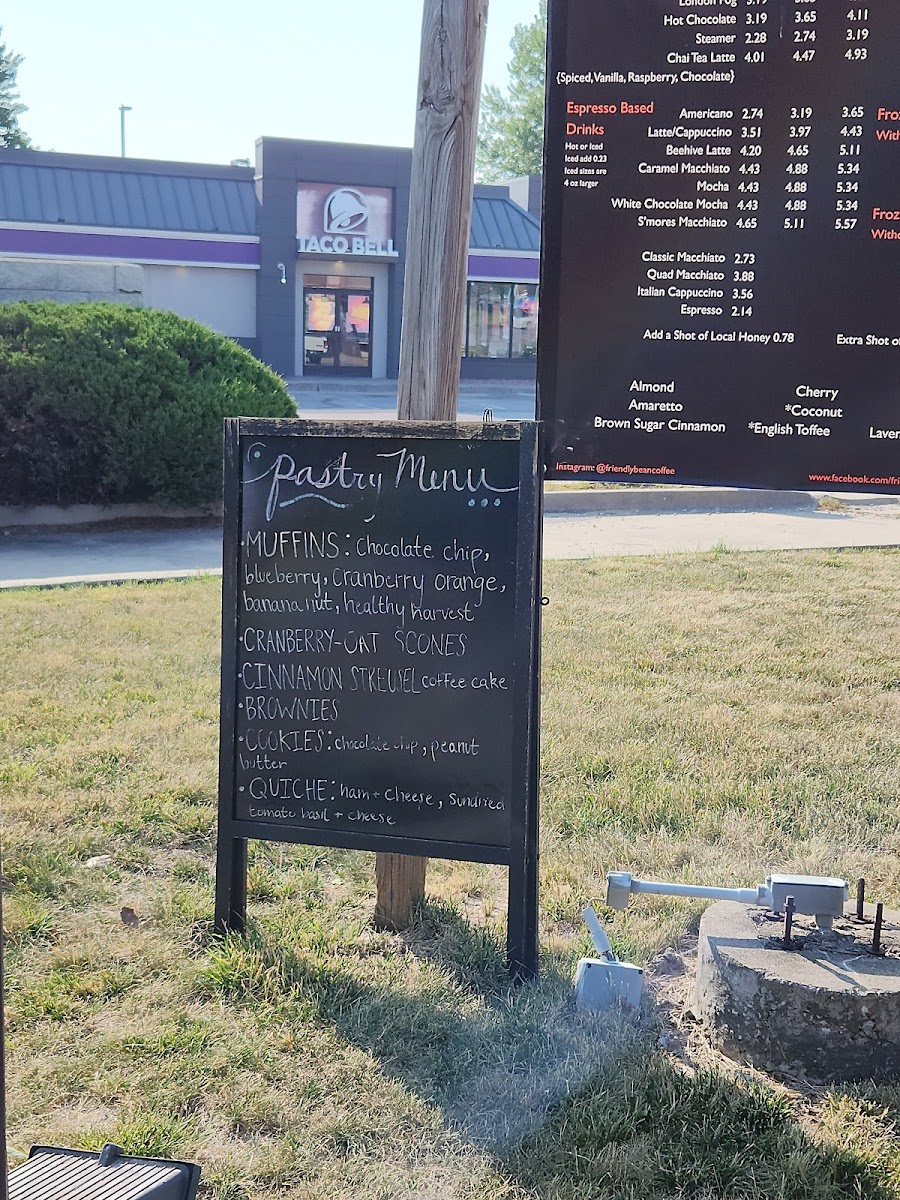 London Fog 3.19 3.65
Hot Chocolate 3.19 3.65 4.11
Steamer 2.28 2.74 3.19
Chai Tea Latte 4.01 4.47 4.93
{Spiced, Vanilla, Raspberry, Chocolate}
Espresso Based
Drinks
Hot or Iced
Iced add 0.23
Iced sizes are
4 oz larger
Americano 2.74 3.19 3.65
Latte/Cappuccino 3.51 3.97 4.43
Beehive Latte 4.20 4.65 5.11
Caramel Macchiato 4.43 4.88 5.34
Mocha 4.43 4.88 5.34
White Chocolate Mocha 4.43 4.88 5.34
S'mores Macchiato 4.65 5.11 5.57
Classic Macchiato 2.73
Quad Macchiato 3.88
Italian Cappuccino 3.56
Espresso 2.14
Add a Shot of Local Honey 0.78
Extra Shot
Almond
Amaretto
Brown Sugar Cinnamon
Cherry
*Coconut
*English Toffee
Instagram: @friendlybeancoffee
www.facebook.com/fri
TACO BELL
Pastry Menu
·MUFFINS: Chocolate chip,
blueberry, cranberry orange,
banana nut, healthy harvest
·CRANBERRY-OAT SCONES
·CINNAMON STREUSEL coffee cake
·BROWNIES
·COOKIES: chocolate chip, peanut
butter
·QUICHE: ham + cheese, Sundried
tomato basil + cheese